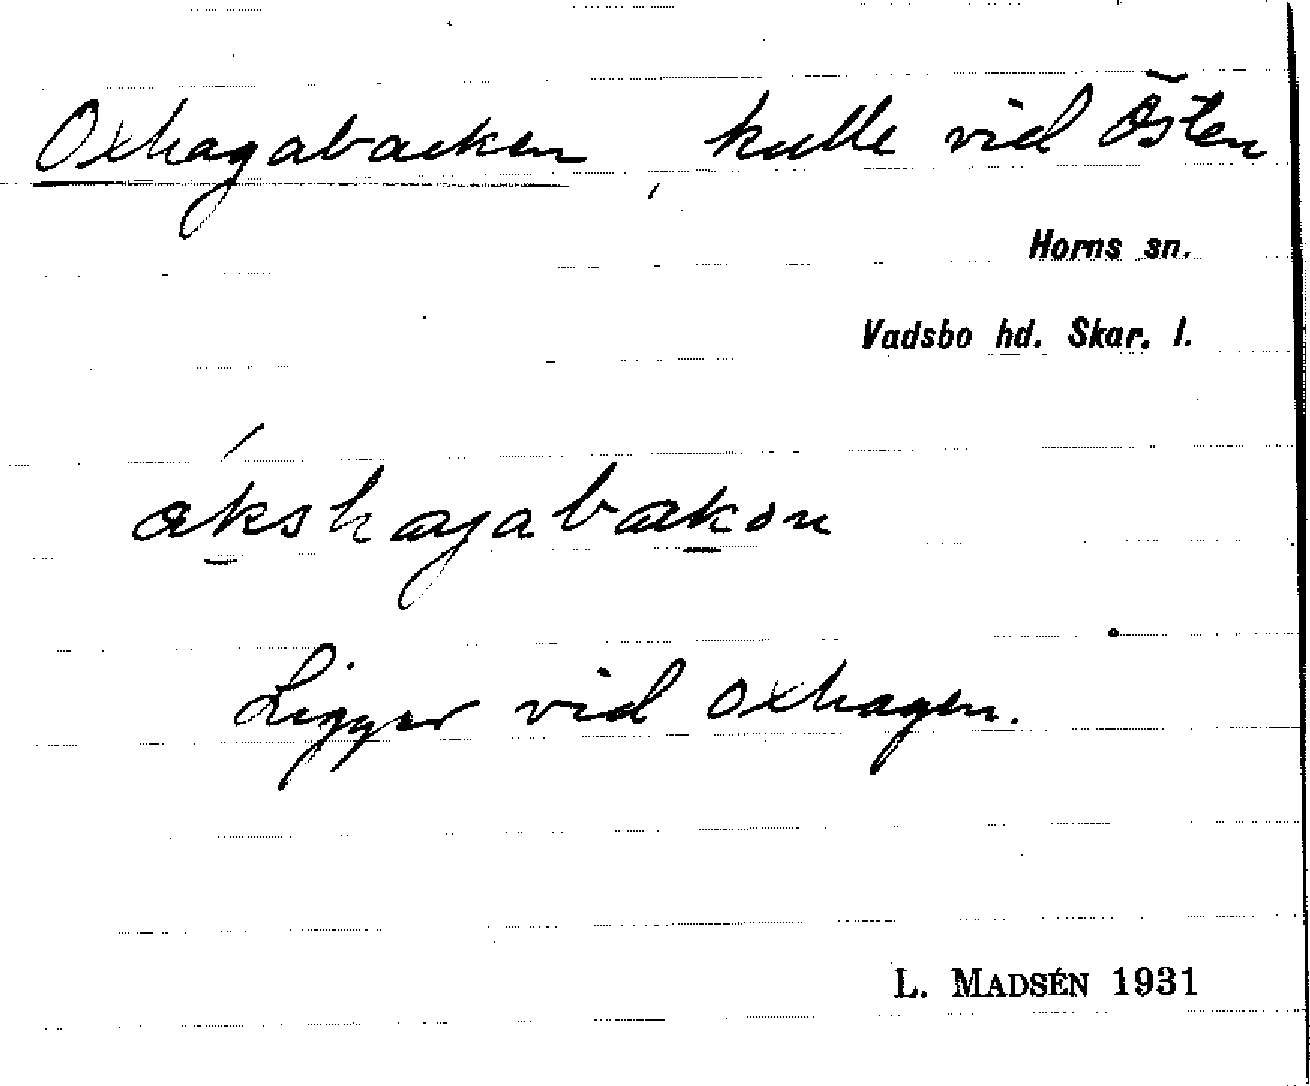 Oxhagabacken, kulle vid Östen
Horns sn.
Vadsbo hd. Skar. l.
ákshagabakən
Ligger vid Oxhagen.
L. MADSÉN 1931